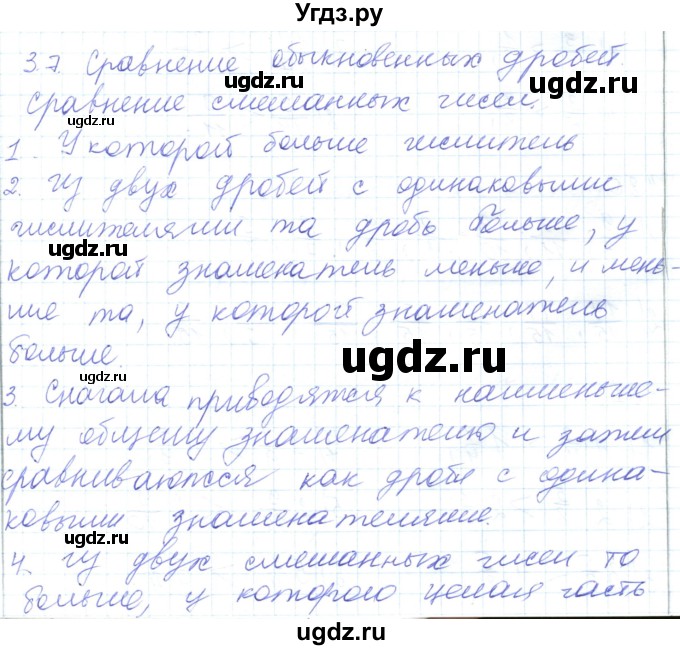 Угдз.ру
3.7. Сравнение обыкновенных дробей.
Сравнение смешанных чисел.
1. У которой больше числитель
2. Из двух дробей с одинаковыми
числителями та дробь больше, у
которой знаменатель меньше, и мень-
ше та, у которого знаменатель
больше
3. Сначала приводятся к наименьше-
му общему знаменателю и затем
сравниваются как дроби с одина-
ковыми знаменателями.
4. Из двух смешанных чисел то
больше, у которого целая часть
ugdz.ru
ugdz.ru
ugdz.ru
ugdz.ru
ugdz.ru
ugdz.ru
ugdz.ru
ugdz.ru
ugdz.ru
ugdz.ru